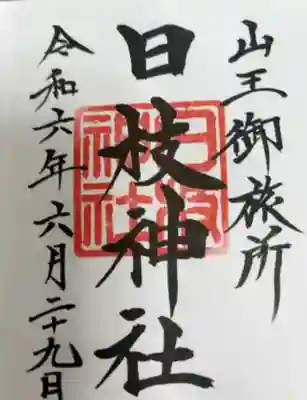 山王御旅所
日枝神社
日枝
神社
令和六年六月二十九日